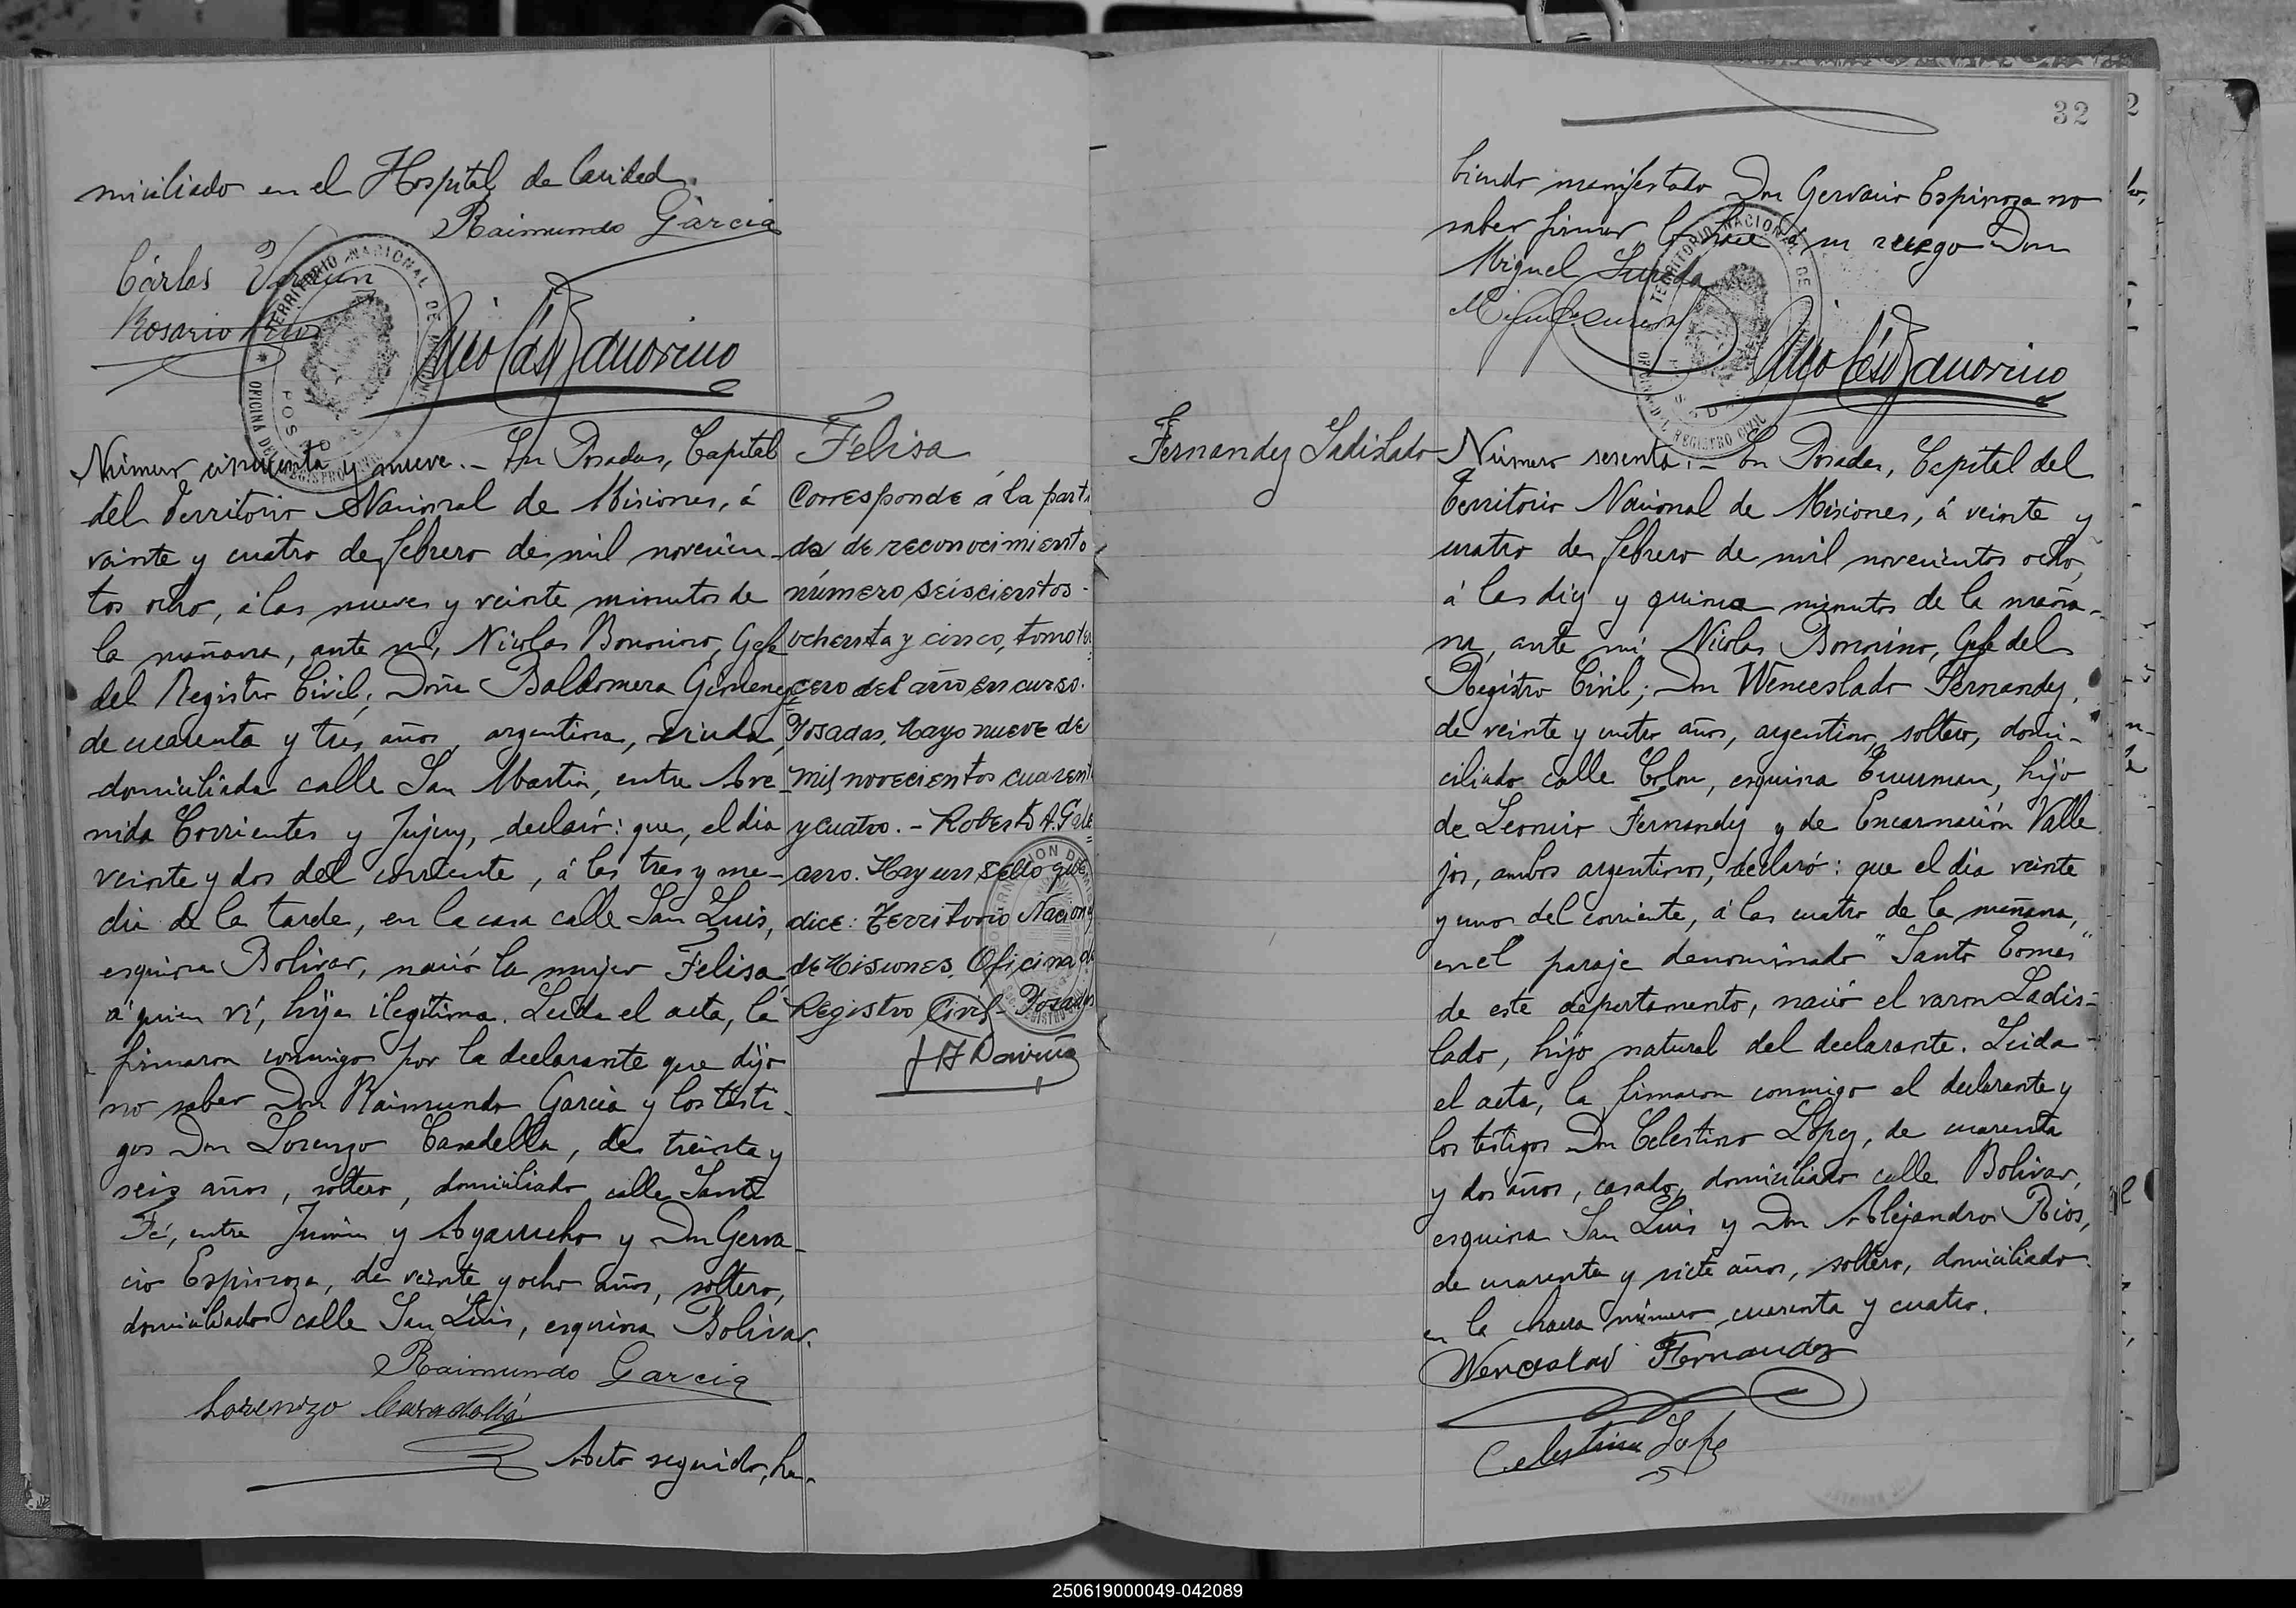 miciliado en el Hospital de Caridad.
Raimundo Garcia
Cárlos
Rosario Rios
TERRITORIO NACIONAL DE
OFICINA DEL REGISTRO CIVIL
POSADAS
Nicolás Bonorino
Número cincuenta y nueve. - En Posadas, Capital
del Territorio Nacional de Misiones, á
veinte y cuatro de febrero de mil novecien-
tos ocho, á las nueve y veinte minutos de
la mañana, ante mí, Nicolas Bonorino, Gefe
del Registro Civil; Doña Baldomera Gimenez
de cuarenta y tres años, argentina, viuda,
domiciliada calle San Martin, entre Ave-
nida Corrientes y Jujuy, declaró: que, el dia
veinte y dos del corriente, á las tres y me-
dia de la tarde, en la casa calle San Luis,
esquina Bolivar, nació la mujer Felisa,
á quien ví, hija ilegítima. Leida el acta, la
firmaron conmigo por la declarante que dijo
no saber Don Raimundo Garcia y los testi-
gos Don Lorenzo Caradella, de treinta y
seis años, soltero, domiciliado calle Santa
Fé, entre Junin y Ayacucho y Don Gerva-
cio Espinoza, de veinte y ocho años, soltero,
domiciliado calle San Luis, esquina Bolivar.
Raimundo Garcia
Lorenzo Caradella
Acto seguido, ha-
Felisa
Corresponde á la parti
da de reconocimiento
número seiscientos
ochenta y cinco, tomo ter
cero del año en curso.
Posadas, Mayo nueve de
mil novecientos cuarent
y cuatro. - Roberto A. Gale
arro. Hay un sello que
dice: Territorio Naciona
de Misiones. Oficina de
Registro Civil - Posadas
32
biendo manifestado Don Gervacio Espinoza no
saber firmar lo hace á su ruego Don
Miguel Sureda
Miguel Sureda
TERRITORIO NACIONAL DE
OFICINA DEL REGISTRO CIVIL
Nicolás Bonorino
Fernandez Ladislado
Número sesenta. - En Posadas, Capital del
Territorio Nacional de Misiones, á veinte y
cuatro de febrero de mil novecientos ocho,
á las diez y quince minutos de la maña-
na, ante mí Nicolas Bonorino, Gefe del
Registro Civil; Don Wenceslado Fernandez,
de veinte y cuatro años, argentino, soltero, domi-
ciliado calle Colon, esquina Tucuman, hijo
de Leoncio Fernandez y de Encarnación Valle
jos, ambos argentinos, declaró: que el dia veinte
y uno del corriente, á las cuatro de la mañana,
en el paraje denominado "Santo Tomas"
de este departamento, nació el varon Ladis-
lado, hijo natural del declarante. Leida
el acta, la firmaron conmigo el declarante y
los testigos Don Celestino López, de cuarenta
y dos años, casado, domiciliado calle Bolivar,
esquina San Luis y Don Alejandro Rios,
de cuarenta y siete años, soltero, domiciliado
en la chacra número cuarenta y cuatro.
Wenceslao Fernandez
Celestino Lopez
250619000049-042089